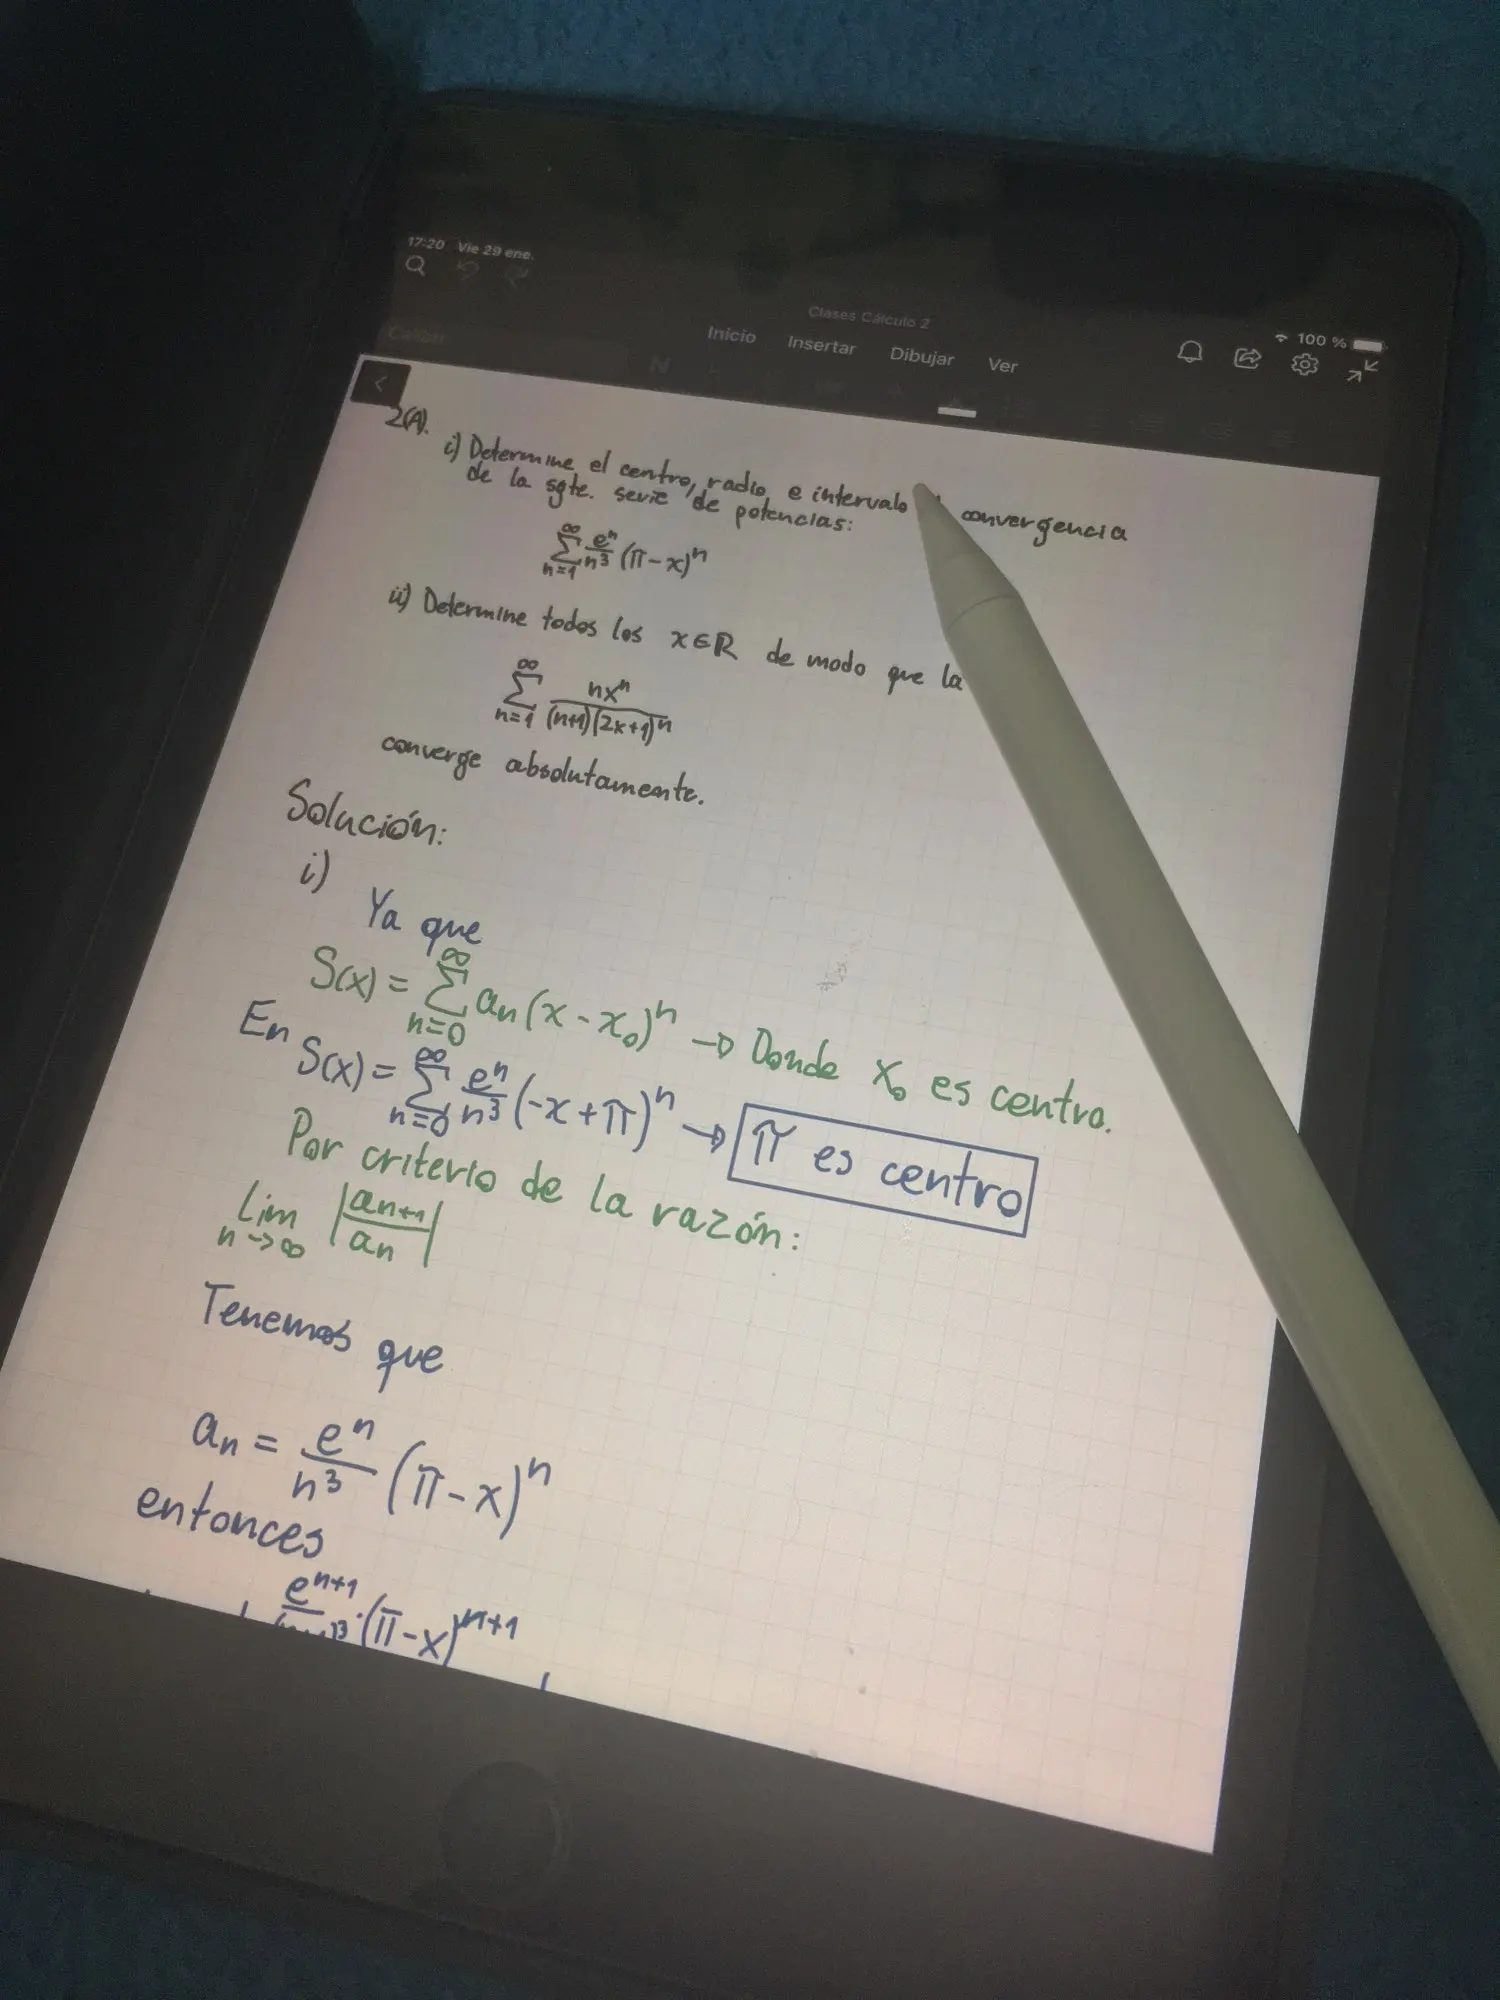 17:20 Vie 29 ene.
Clases Cálculo 2
100 %
Inicio Insertar Dibujar Ver
Calibri
N
2(A).
i) Determine el centro, radio, e intervalo convergencia
de la sgte. serie de potencias:
∑_{n=1}^{∞} e^n/n^3 (π-x)^n
ii) Determine todos los x∈ℝ de modo que la
∑_{n=1}^{∞} nx^n/((n+1)(2x+1)^n)
converge absolutamente.
Solución:
i)
Ya que
S(x) = ∑_{n=0}^{∞} a_n (x-x_0)^n → Donde x_0 es centro.
En S(x) = ∑_{n=0}^{∞} e^n/n^3 (-x+π)^n → π es centro
Por criterio de la razón:
Lim_{n→∞} |a_{n+1}/a_n|
Tenemos que
a_n = e^n/n^3 (π-x)^n
entonces
e^{n+1} · (π-x)^{n+1}